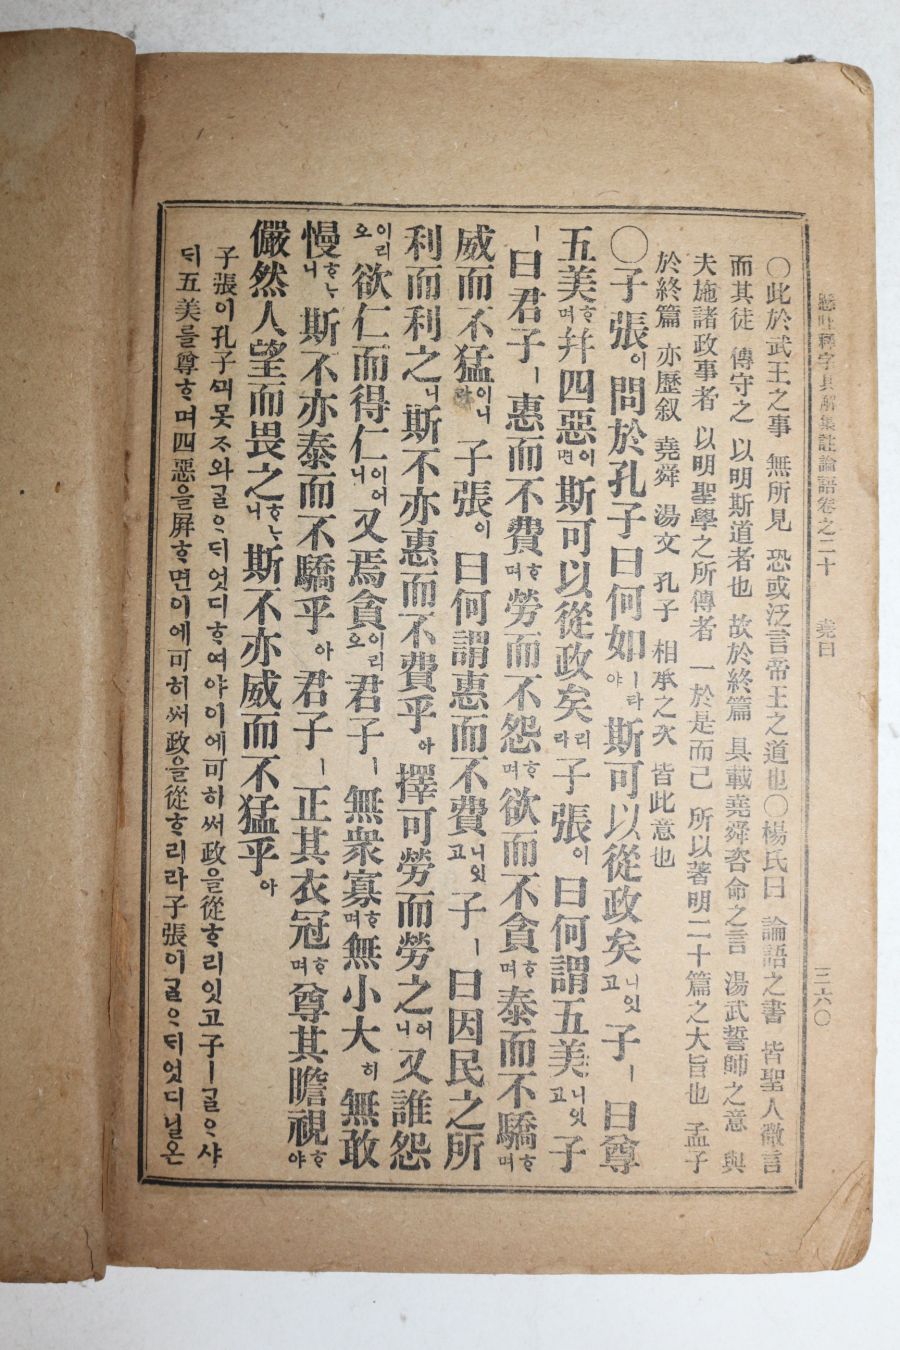 懸吐釋字具解集註論語卷之二十 堯曰 三六〇
〇此於武王之事 無所見 恐或泛言帝王之道也〇楊氏曰 論語之書 皆聖人微言
而其徒 傳守之 以明斯道者也 故於終篇 具載堯舜咨命之言 湯武誓師之意 與
夫施諸政事者 以明聖學之所傳者 一於是而已 所以著明二十篇之大旨也 孟子
於終篇 亦歷叙 堯舜 湯文 孔子 相承之次 皆此意也
〇子張이問於孔子曰何如ㅣ라야斯可以從政矣니잇고子ㅣ曰尊
五美ᄒᆞ며幷四惡이면斯可以從政矣리라子張이曰何謂五美니잇고子
ㅣ曰君子ㅣ惠而不費ᄒᆞ며勞而不怨ᄒᆞ며欲而不貪ᄒᆞ며泰而不驕ᄒᆞ며
威而不猛이니라子張이曰何謂惠而不費니잇고子ㅣ曰因民之所
利而利之니斯不亦惠而不費乎아擇可勞而勞之어니又誰怨
이리오欲仁而得仁이어니又焉貪이리오君子ㅣ無衆寡ᄒᆞ며無小大히無敢
慢ᄒᆞᄂᆞ니斯不亦泰而不驕乎아君子ㅣ正其衣冠ᄒᆞ며尊其瞻視ᄒᆞ야
儼然人望而畏之ᄒᆞᄂᆞ니斯不亦威而不猛乎아
子張이孔子ᄭᅴ못ᄌᆞ와ᄀᆞᆯᄋᆞᄃᆡ엇디ᄒᆞ여야이에可히ᄡᅥ政을從ᄒᆞ리잇고子ㅣᄀᆞᆯᄋᆞ샤
ᄃᆡ五美를尊ᄒᆞ며四惡을屛ᄒᆞ면이에可히ᄡᅥ政을從ᄒᆞ리라子張이ᄀᆞᆯᄋᆞᄃᆡ엇디닐온